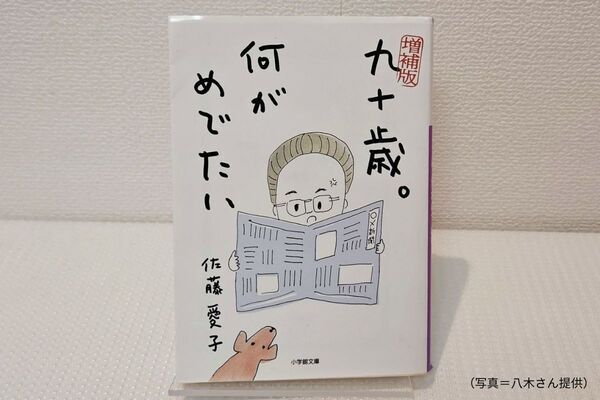 増補版
九十歳。
何が
めでたい
佐藤愛子
○×新聞
小学館文庫
(写真=八木さん提供)